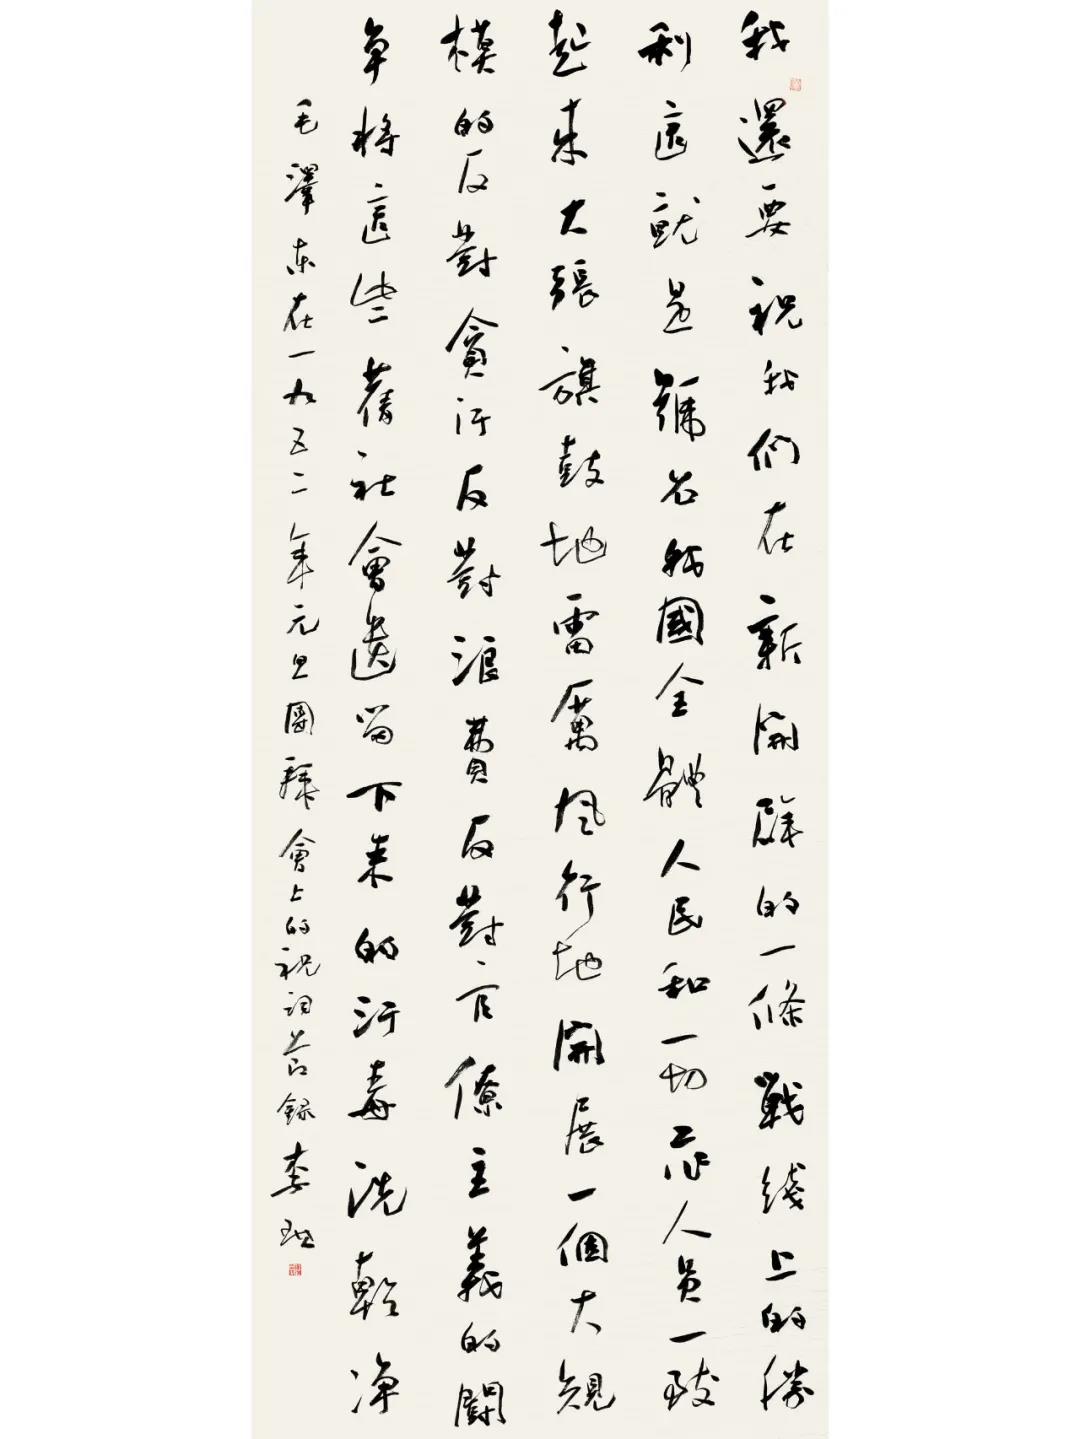 我還要祝我們在新開辟的一條戰线上的勝
利這就是號召我國全體人民和一切工作人員一致
起來大張旗鼓地雷厲風行地開展一個大規
模的反對貪污反對浪費反對官僚主義的鬪
争將這些舊社會遗留下来的污毒洗乾净
毛澤东在一九五二年元旦團拜會上的祝词节録李